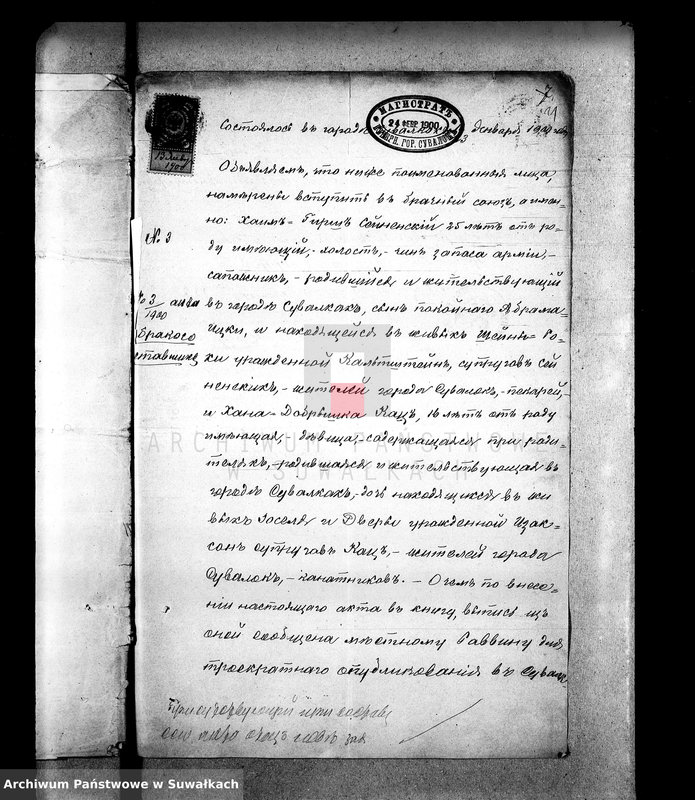 МАГИСТРАТЪ
24 ФЕВР. 1900
ГУБЕРН. ГОР. СУВАЛОКЪ
Состоялось въ городѣ января 1900 года
7
Объявляемъ, что ниже поименованныя лица,
намѣрены вступить въ брачный союзъ, а имен=
но: Хаимъ= Гиршъ Сейненскій 25 лѣтъ отъ ро=
№ 3
ду имѣющій,- холостъ,- чинъ запаса арміи,-
сапожникъ,- родившійся и жительствующій
№ 3 акта
1900
бракосо
въ городѣ Сувалкахъ, сынъ покойнаго Абрама=
Ицки, и находящейся въ живыхъ Шейны= Ро=
хи урожденной супруговъ Сей
ненскихъ,- жителей города Сувалокъ,- пекарей,-
и Хана= Кацъ, лѣтъ отъ роду
имѣющая,- дѣвица,- содержащаяся при роди=
теляхъ,- родившаяся и жительствующая въ
городѣ Сувалкахъ,- дочь находящихся въ жи
выхъ Іоселя и Двейры урожденной Изак=
сонъ супруговъ Кацъ,- жителей города
Сувалокъ,- канатниковъ. - О чемъ по внесе=
ніи настоящаго акта въ книгу, выпись изъ
оной сообщена мѣстному Раввину для
троекратнаго опубликованія въ Сувалк
ARCHIWUM PAŃSTWOWE
W SUWAŁKACH
Archiwum Państwowe w Suwałkach